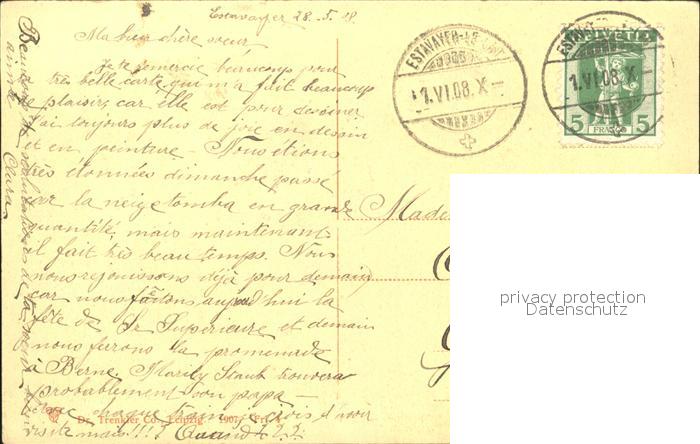 Estavayer 28.-5. 08.
Ma bien chère sœur
je te remercie beaucoup pour
très belle carte qui m'a fait beaucoup
de plaisir, car elle est pour dessiner
j'ai toujours plus de joie en dessin
et en peinture. Nous étions
très étonnées dimanche passé
car la neige tomba en grande
quantité, mais maintenant
il fait très beau temps. Nous
nous rejouissons déjà pour demain
car nous fêtons aujourd'hui la
fête de Sr Supérieure et demain
nous ferons la promenade
à Berne. Marily Staub trouvera
probablement son papa
chaque train je crois d'avoir
visite mais!!!? Quand???
Beaucoup de salutations de ta sœur
aimée
Clara
Dr. Trenkler Co., Leipzig. 1907.
ESTAVAYER-LE-LAC
1.VI.08.X
ESTAVAYER
1.VI.08.X
HELVETIA
5 FRANCO 5
Made
privacy protection
Datenschutz